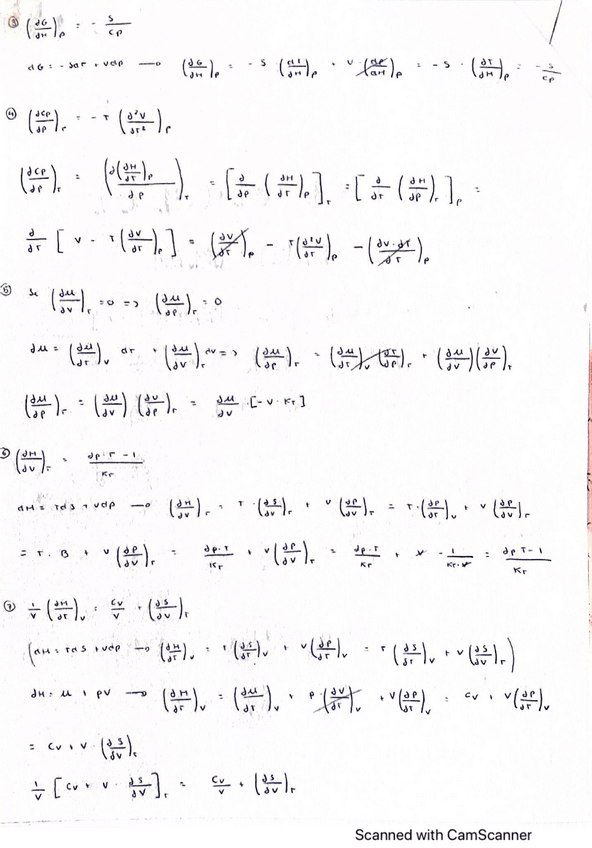 ③ (∂G/∂H)_P = - S/CP
dG = -SdT + VdP → (∂G/∂H)_P = - S (∂T/∂H)_P + V (∂P/∂H)_P = - S · (∂T/∂H)_P = - S/CP
④ (∂CP/∂P)_T = - T (∂²V/∂T²)_P
(∂CP/∂P)_T = (∂(∂H/∂T)_P/∂P)_T = [∂/∂P (∂H/∂T)_P]_T = [∂/∂T (∂H/∂P)_T]_P =
∂/∂T [V - T (∂V/∂T)_P] = (∂V/∂T)_P - T (∂²V/∂T²)_P - (∂V·∂T/∂T)_P
⑤ Se (∂M/∂V)_T = 0 => (∂M/∂P)_T = 0
dM = (∂M/∂T)_V dT + (∂M/∂V)_T dV => (∂M/∂P)_T = (∂M/∂T)_V (∂T/∂P)_T + (∂M/∂V)(∂V/∂P)_T
(∂M/∂P)_T = (∂M/∂V) (∂V/∂P)_T = ∂M/∂V · [-V · KT]
⑥ (∂H/∂V)_T = ∂P·T - 1/KT
dH = TdS + VdP → (∂H/∂V)_T = T · (∂S/∂V)_T + V (∂P/∂V)_T = T · (∂P/∂T)_V + V (∂P/∂V)_T
= T · B + V (∂P/∂V)_T = ∂P·T/KT + V (∂P/∂V)_T = ∂P·T/KT + V · - 1/KT·V = ∂P T - 1/KT
⑦ 1/V (∂H/∂T)_V = CV/V + (∂S/∂V)_T
(dH = TdS + VdP → (∂H/∂T)_V = T (∂S/∂T)_V + V (∂P/∂T)_V = T (∂S/∂T)_V + V (∂S/∂V)_T)
dH = M + PV → (∂H/∂T)_V = (∂M/∂T)_V + P · (∂V/∂T)_V + V (∂P/∂T)_V = CV + V (∂P/∂T)_V
= CV + V · (∂S/∂V)_T
1/V [CV + V · ∂S/∂V]_T = CV/V + (∂S/∂V)_T
Scanned with CamScanner